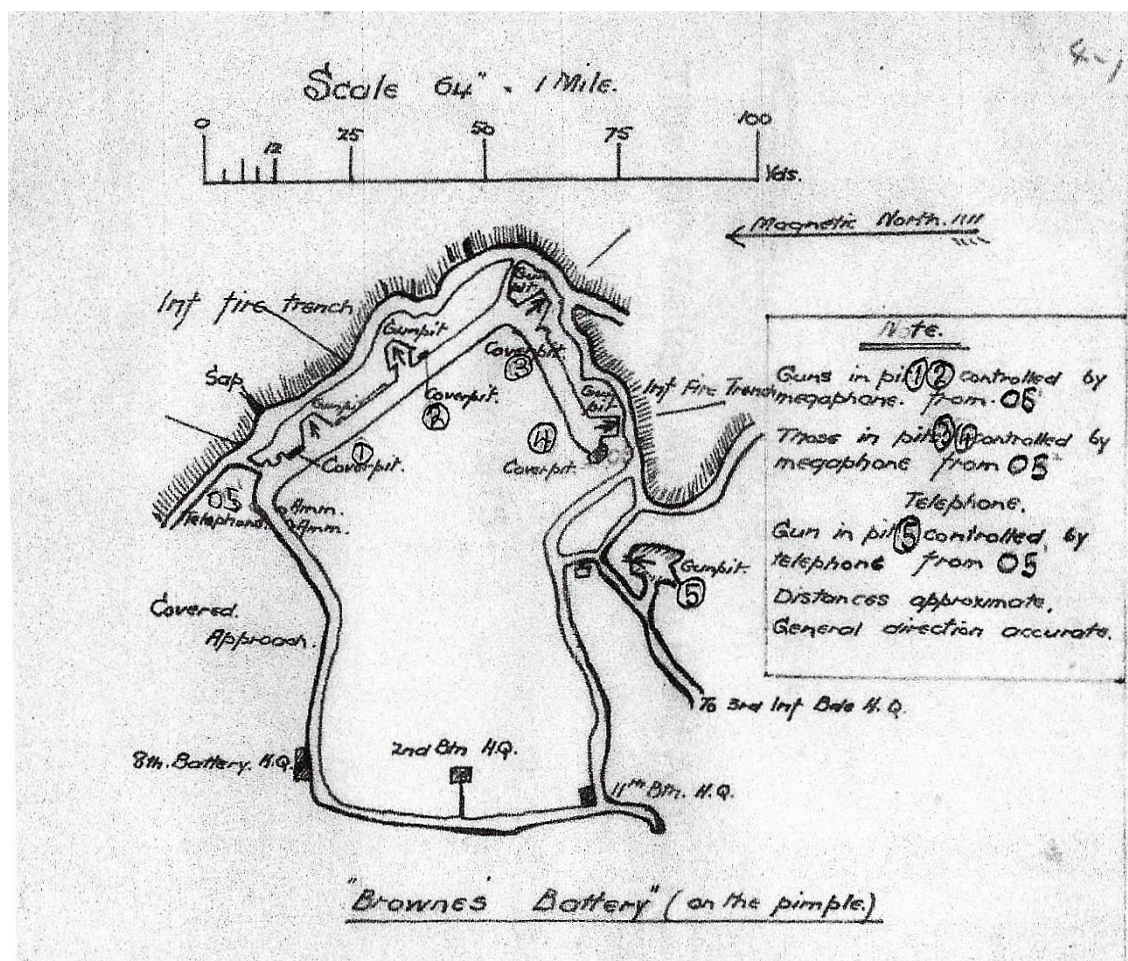 4-1
Scale 64" = 1 Mile.
0 12 25 50 75 100
Yds.
Magnetic North.
Inf fire trench
Sap
Gunpit
Gun pit
Gunpit
Coverpit. ③
Coverpit. ②
Gunpit
① Coverpit.
Gun pit
④ Coverpit.
Inf Fire Trench
O5
Telephone.
Amm.
Amm.
Gunpit.
⑤
Covered
Approach.
To 3rd Inf Bde H.Q.
8th. Battery. H.Q.
2nd Btn H.Q.
11th Btn. H.Q.
Note.
Guns in pit ① ② controlled by
megaphone. from O5
Those in pits ③ ④ controlled by
megaphone from O5
Telephone.
Gun in pit ⑤ controlled by
telephone from O5
Distances approximate.
General direction accurate.
"Browne's Battery" (on the pimple.)